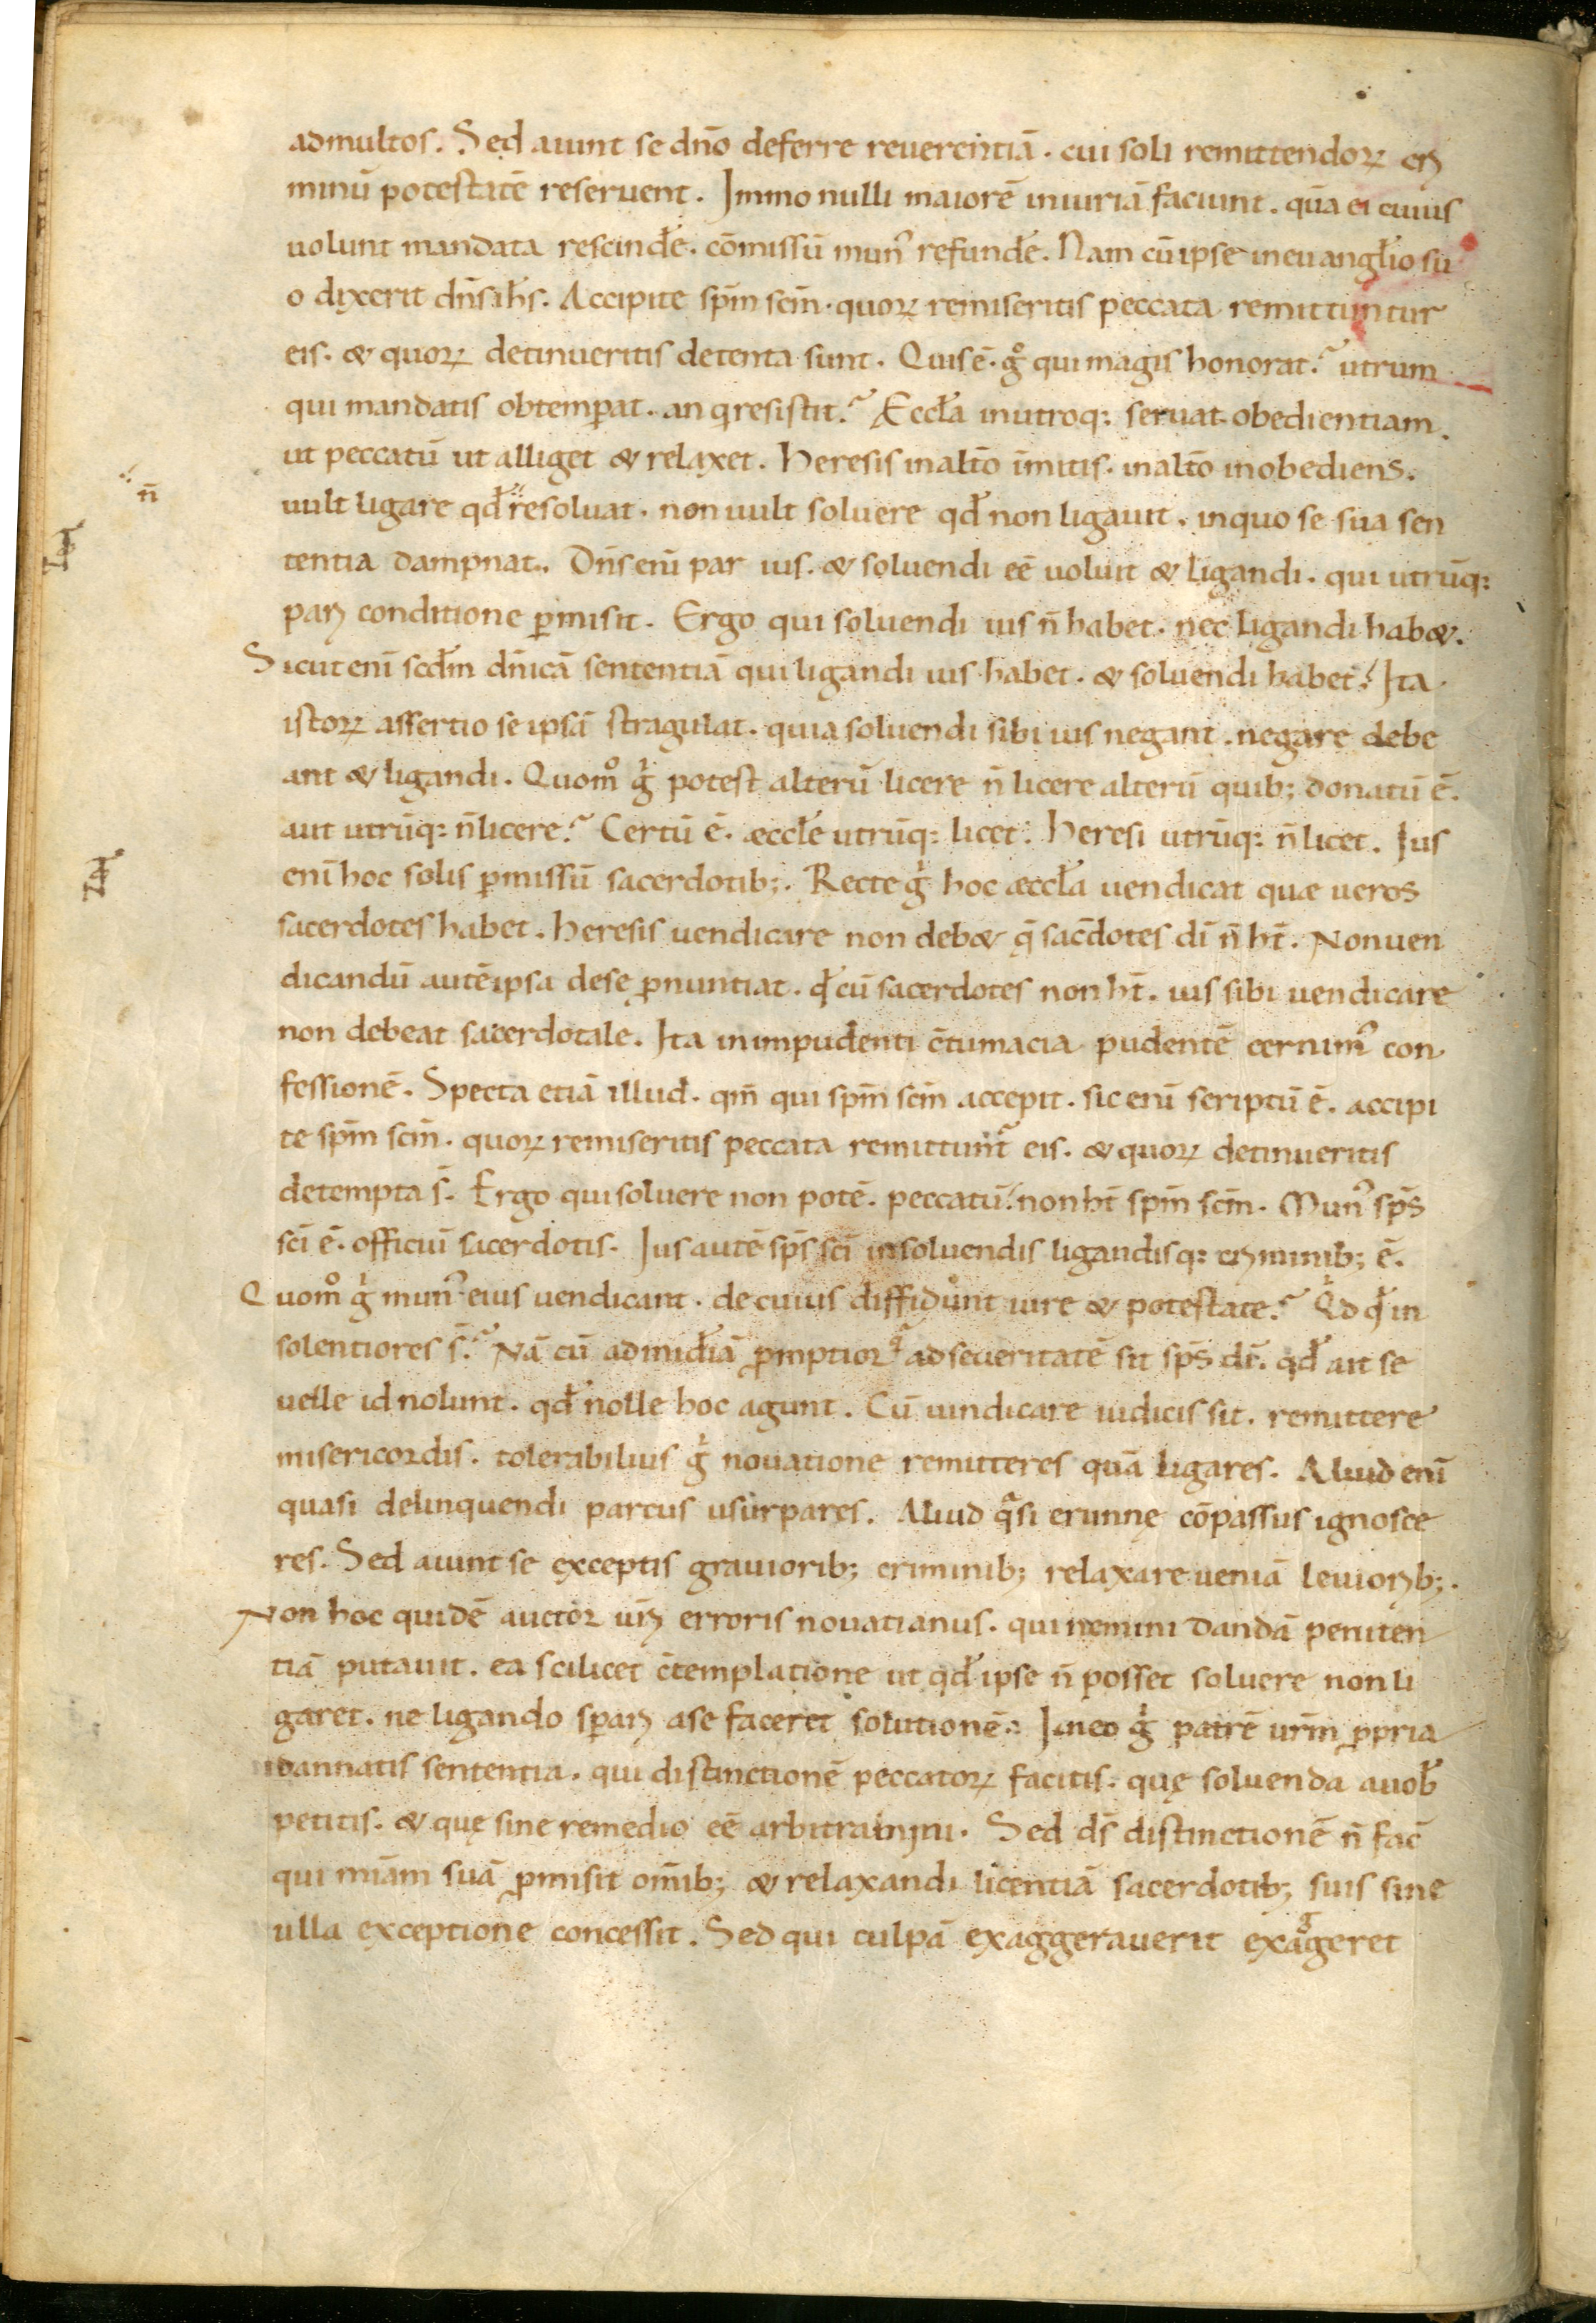 admultos. Sed aiunt se dn̄o deferre reuerentiā. cui soli remittendoꝝ cri
minū potestatē reseruent. Immo nulli maiorē iniuriā faciunt. quā ei cuius
uolunt mandata rescindẻ. cōmissū mun᾽ refundẻ. Nam cū ipse in euangł̉io su
o dixerit dn̄s ih̄s. Accipite sp̄m sc̄m. quoꝝ remiseritis peccata remittuntur
eis. & quoꝝ detinueritis detenta sunt. Quis ē. gͦ qui magis honorat? utrum
qui mandatis obtemꝑat. an q̇ resistit? Æccł̉a inutroq; seruat obedientiam.
ut peccatū ut alliget & relaxet. Heresis inalt̄o īmitis. inalt̄o inobediens.
n̄
uult ligare qđ resoluat. non uult soluere qđ non ligauit. inquo se sua sen
tentia dampnat. Dn̄s eni par ius. & soluendi eē uoluit & ligandi. qui utrūq;
pari conditione ꝑmisit. Ergo qui soluendi ius n̄ habet. nec ligandi hab&.
Sicut eni scđm dn̄icā sententiā qui ligandi ius habet. & soluendi habet. Ita
istoꝝ assertio se ipsā stragulat. quia soluendi sibi ius negant. negare debe
ant & ligandi. Quomͦ gⁱ potest alterū licere n̄ licere alterū quib; donatū ē.
aut utrūq; n̄ licere? Certū ē. æccł̉e utrūq; licet. Heresi utrūq; n̄ licet. Ius
enī hoc solis ꝑmissū sacerdotib;. Recte gⁱ hoc æccł̉a uendicat quæ ueros
sacerdotes habet. Heresis uendicare non deb& q̄ sac̄dotes dī n̄ ht̄. Non uen
dicandū autē ipsa dese ꝓnuntiat. qđ cū sacerdotes non ht̄. ius sibi uendicare
non debeat sacerdotale. Ita inimpudenti c̄tumacia pudentē cernim᾽ con
fessionē. Specta etiā illud. qm̄ qui sp̄m sc̄m accepit. sic enī scriptū ē. accipi
te sp̄m sc̄m. quoꝝ remiseritis peccata remittunt᾽ eis. & quoꝝ detinueritis
detempta s̄. Ergo qui soluere non potē. peccatū. non ht̄ sp̄m sc̄m. Mun᾽ sp̄s
sc̄i ē. officiū sacerdotis. Ius autē sp̄s sc̄i insoluendis ligandisq; criminib; ē.
Quomͦ gⁱ mun᾽ eius uendicant. de cuius diffidunt iure & potestate? Qⁱd qđ in
solentiores s̄? Nā cū admid̄iā ꝓmptior qᵃ adseueritatē sit sp̄s dī. qđ ait se
uelle id nolunt. qđ nolle hoc agunt. Cū uindicare iudicis sit. remittere
misericordis. tolerabilius gⁱ nouatione remitteres quā ligares. Aliud enī
quasi delinquendi parcus usurpares. Aliud qᵃsi erunnę cōpassus ignosce
res. Sed aiunt se exceptis grauiorib; criminib; relaxare ueniā leuiorib;.
Non hoc quidē auctor ur̄i erroris nouatianus. qui nemini dandā peniten
tiā putauit. ea scilicet c̄templatione ut qđ ipse n̄ posset soluere non li
garet. ne ligando sꝑari ase faceret solutionē. In eo gⁱ patrē ur̄m ꝓpria
dannatis sententia. qui distinctionē peccatoꝝ facitis. quę soluenda auoƀ
petitis. & quę sine remedio eē arbitramini. Sed d̄s distinctionē n̄ fac̄
qui miām suā ꝓmisit om̄ib; & relaxandi licentiā sacerdotib; suis sine
ulla exceptione concessit. Sed qui culpā exaggerauerit exaggeret